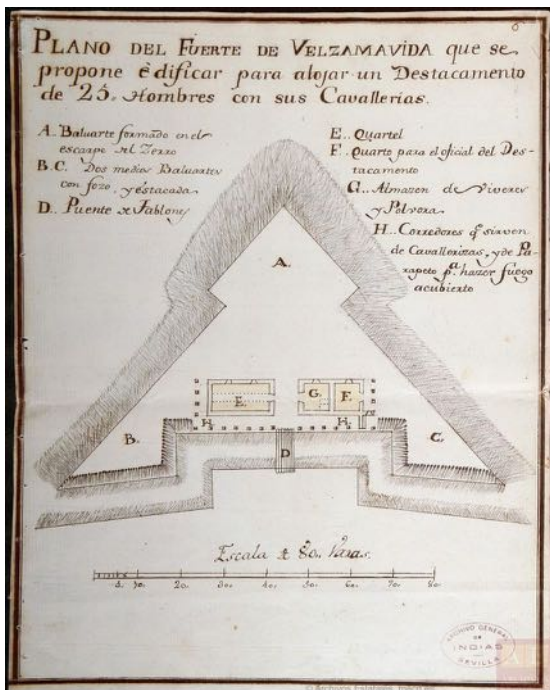 6
PLANO DEL FUERTE DE VELZAMAVIDA que se
propone èdificar para alojar un Destacamento
de 25. Hombres con sus Cavallerias.
A.. Baluarte formado en el
escarpe del Zerro
B.C. Dos medios Baluartes
con fozo, y estacada
D.. Puente de Tablones
E.. Quartel
F.. Quarto para el oficial del Des-
tacamento
G.. Almazen de Viveres
y Polvora
H.. Corredores q.e sirven
de Cavallerizas, y de Pa-
rapeto p.a hazer fuego
acubierto
A.
E.
G.
F.
H.
H.
B.
C.
D
Escala de 80. Varas.
10. 20. 30. 40. 50. 60. 70. 80.
ARCHIVO GENERAL
DE
INDIAS
SEVILLA